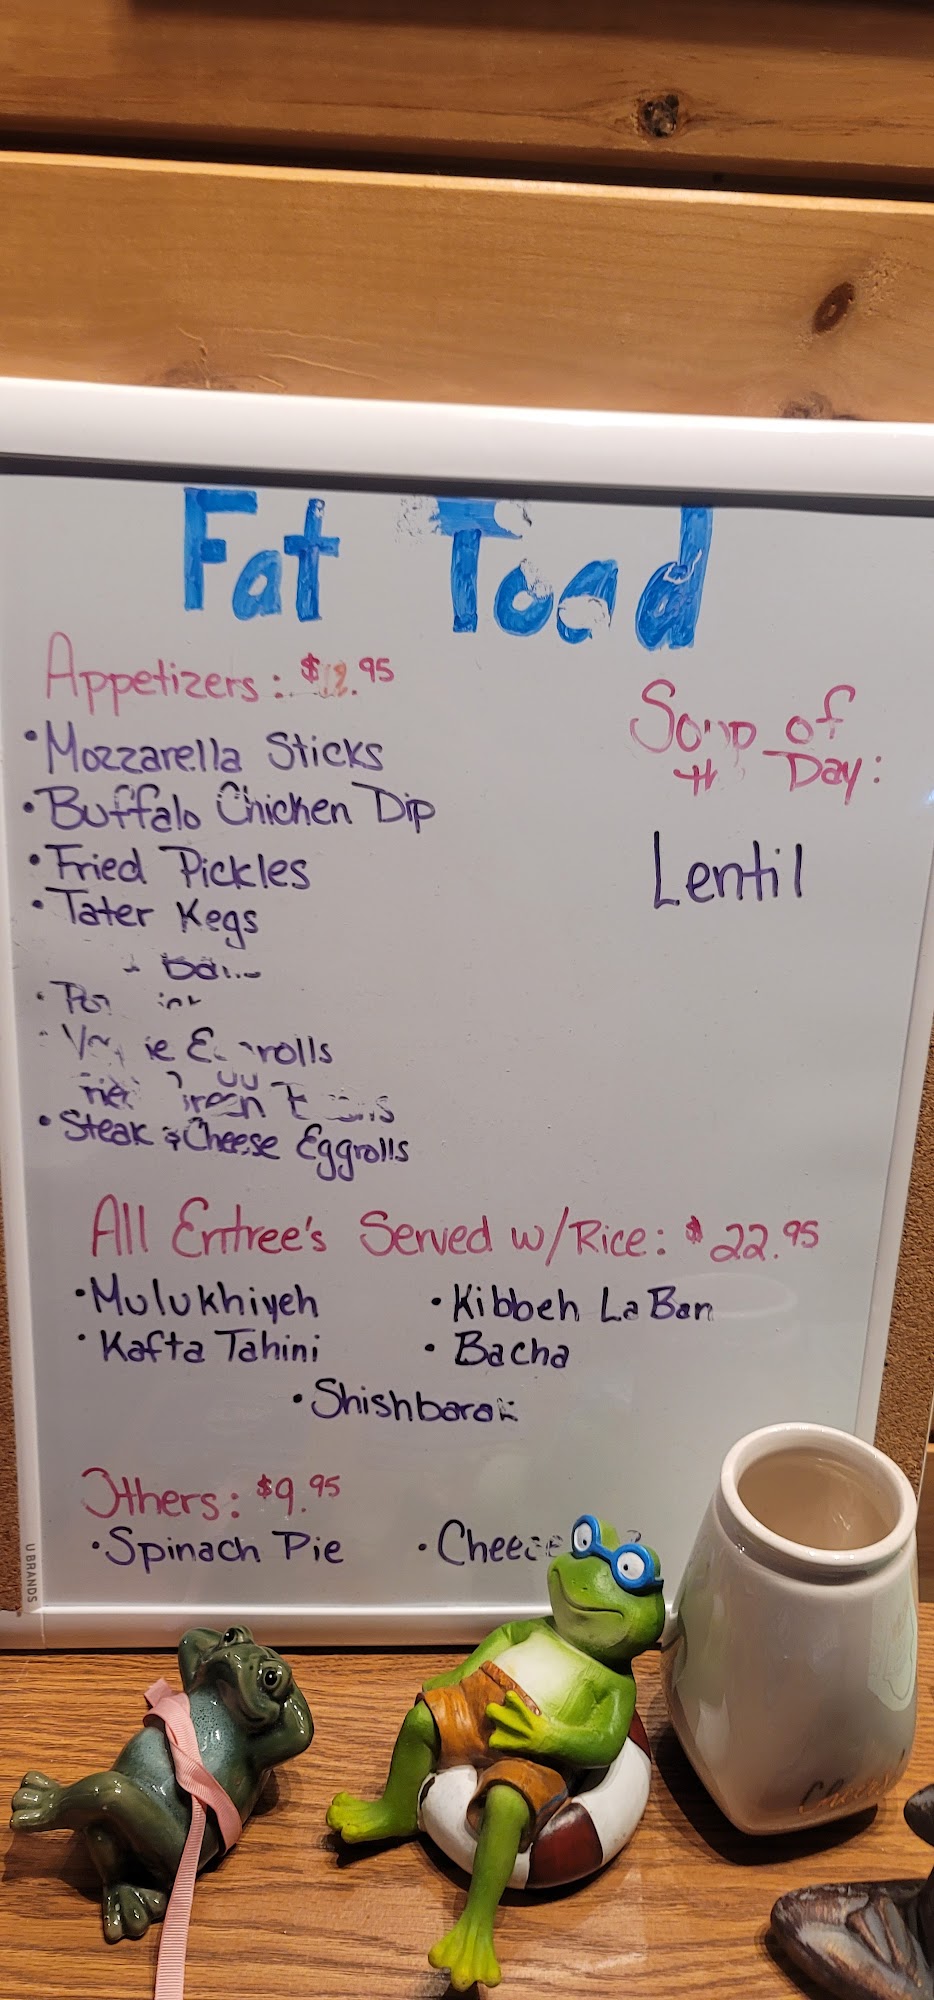 Fat Toad
Appetizers:
• Mozzarella Sticks
• Buffalo Chicken Dip
• Fried Pickles
• Tater Kegs
• Steak & Cheese Eggrolls
Soup of
Day:
Lentil
All Entree's Served w/Rice: $22.95
• Mulukhiyeh
• Kibbeh LaBan
• Kafta Tahini
• Bacha
• Shishbarak
Others: $9.95
• Spinach Pie
• Cheese
U BRANDS